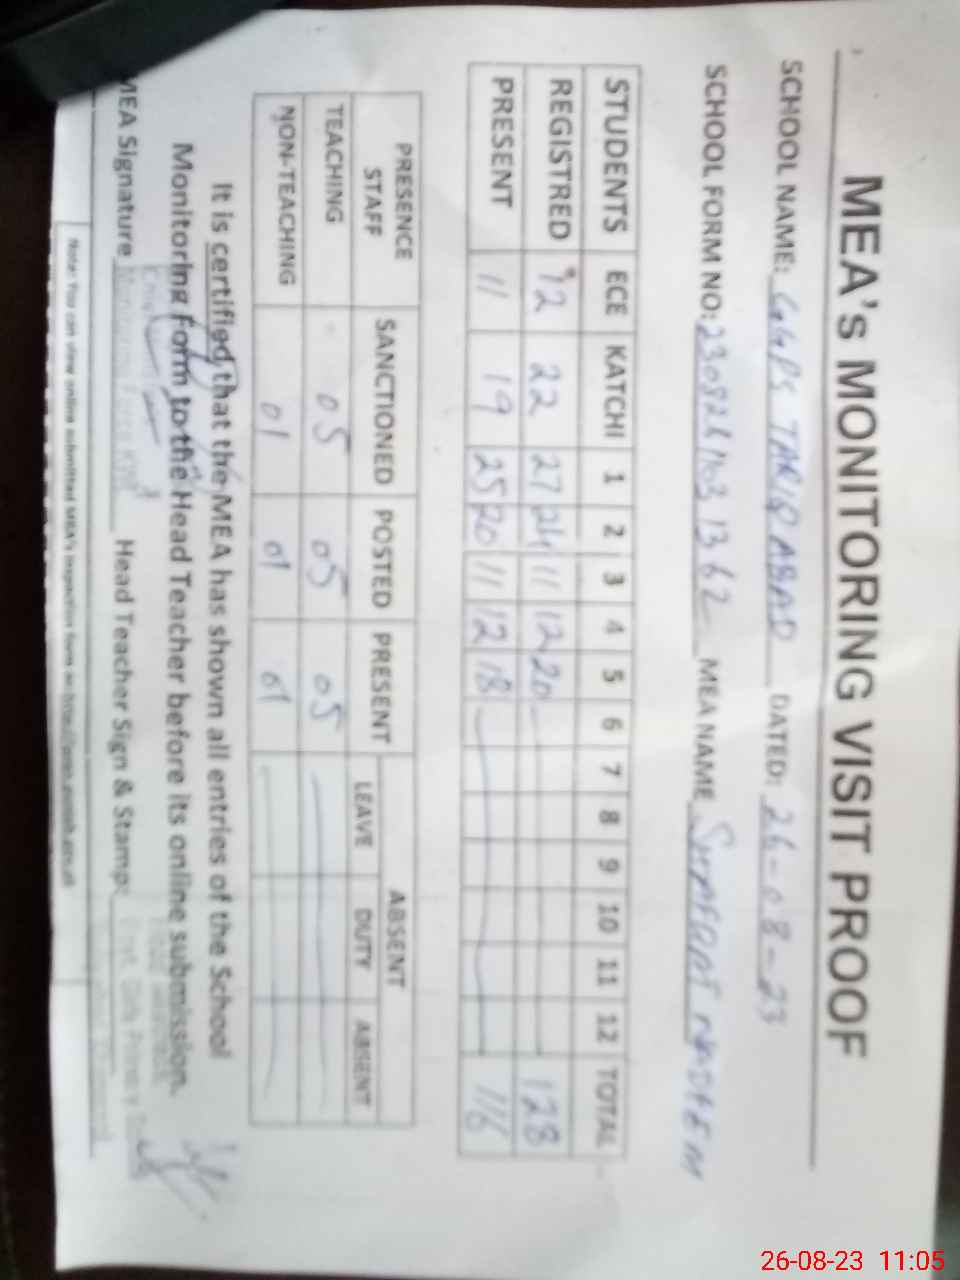 MEA's MONITORING VISIT PROOF
SCHOOL NAME: GGPS TARIQ ABAD DATED: 26-08-23
SCHOOL FORM NO: MEA NAME NADEEM
STUDENTS ECE KATCHI 1 2 3 4 5 6 7 8 9 10 11 12 TOTAL
REGISTRED 12 22 27 24 11 12 20 128
PRESENT 11 19 25 20 11 12 18 116
PRESENCE STAFF SANCTIONED POSTED PRESENT ABSENT
LEAVE DUTY ABSENT
TEACHING 05 05 05
NON-TEACHING 01 01 01
It is certified that the MEA has shown all entries of the School
Monitoring Form to the Head Teacher before its online submission.
MEA Signature Head Teacher Sign & Stamp:
Note: You can view online submitted MEA's inspection form on
26-08-23 11:05